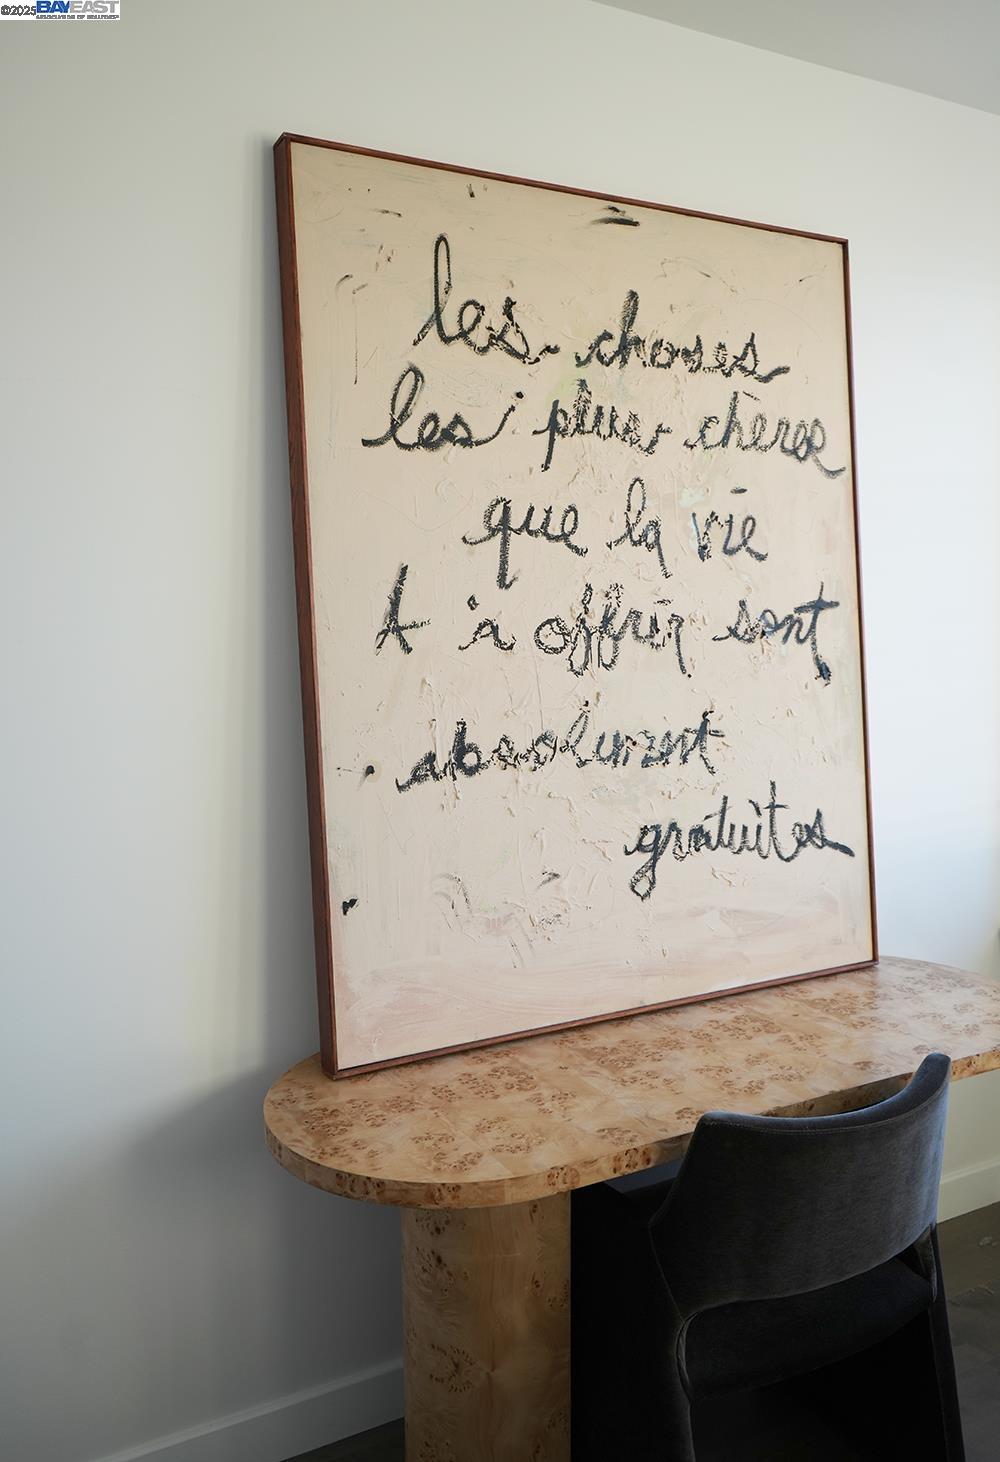 ©2025 BAYEAST
ASSOCIATION OF REALTORS®
les choses
les plus chères
que la vie
A à offrir sont
absolument
gratuites